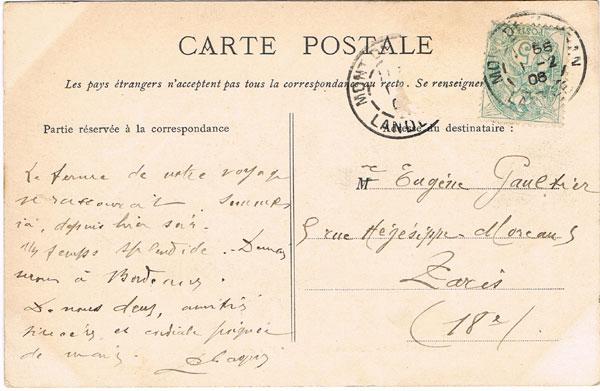 CARTE POSTALE
Les pays étrangers n'acceptent pas tous la correspondance au recto. Se renseigner
Partie réservée à la correspondance
Le terme de notre voyage
se raccourcit. Sommes
ici, depuis hier soir.
temps splendide. Demain
serons à Bordeaux.
De nous deux, amitiés
sincères et cordiale poignée
de main.
Adresse du destinataire :
M Eugène Gaultier
5 rue Hégésippe-Moreau 5
Paris
(18e)
MONT
LANDES
MARSAN
2
08